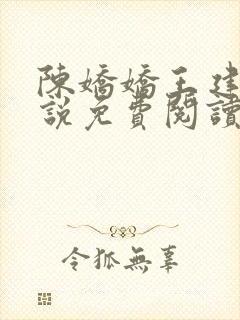 陳嬌嬌王建
說免費閱讀
令狐無辜